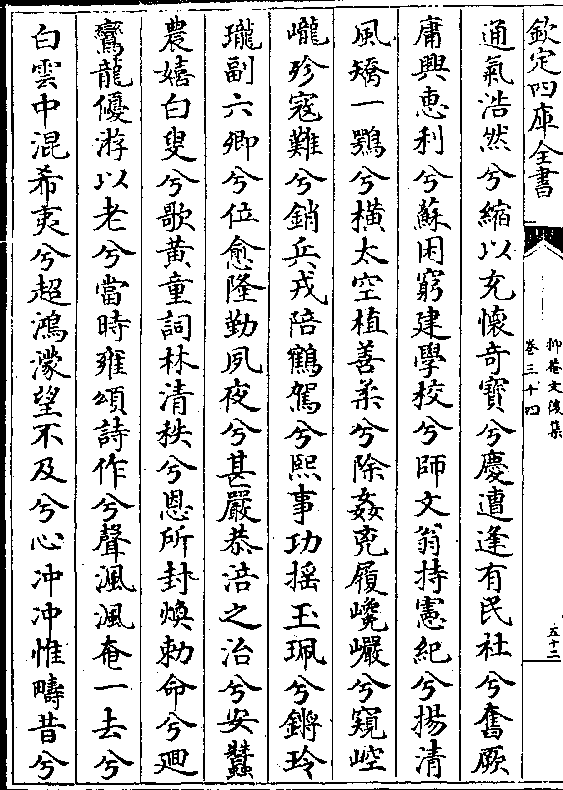 欽定四庫全書
抑菴文後集
卷三十四
五十二
通氣浩然兮縮以充懷竒寶兮慶遭逢有民社兮奮厥
庸興惠利兮蘇困窮建學校兮師文翁持憲紀兮揚清
風矯一鶚兮橫太空植善柔兮除姦兇履巉巖兮窺崆
巄殄寇難兮銷兵戎陪鶴駕兮熙事功揺玉珮兮鏘玲
瓏副六卿兮位愈隆勤夙夜兮甚嚴恭涪之治兮安蠶
農嬉白叟兮歌黄童詞林清秩兮恩所封煥勅命兮迴
鸞龍優游以老兮當時雍頌詩作兮聲渢渢奄一去兮
白雲中混希夷兮超鴻濛望不及兮心冲冲惟疇昔兮